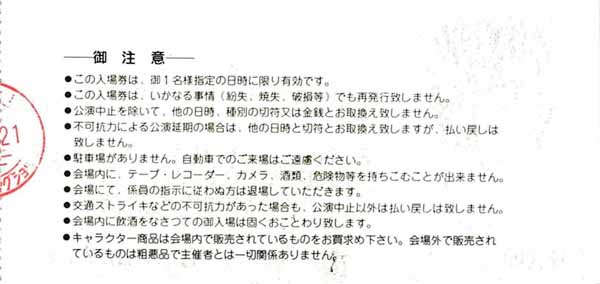 御 注 意
●この入場券は、御1名様指定の日時に限り有効です。
●この入場券は、いかなる事情（紛失、焼失、破損等）でも再発行致しません。
●公演中止を除いて、他の日時、種別の切符又は金銭とお取換え致しません。
●不可抗力による公演延期の場合は、他の日時と切符とお取換え致しますが、払い戻しは
致しません。
●駐車場がありません。自動車でのご来場はご遠慮ください。
●会場内に、テープ・レコーダー、カメラ、酒類、危険物等を持ちこむことが出来ません。
●会場にて、係員の指示に従わぬ方は退場していただきます。
●交通ストライキなどの不可抗力があった場合も、公演中止以外は払い戻しは致しません。
●会場内に飲酒をなさつての御入場は固くおことわり致します。
●キャラクター商品は会場内で販売されているものをお買求め下さい。会場外で販売され
ているものは粗悪品で主催者とは一切関係ありません。
21